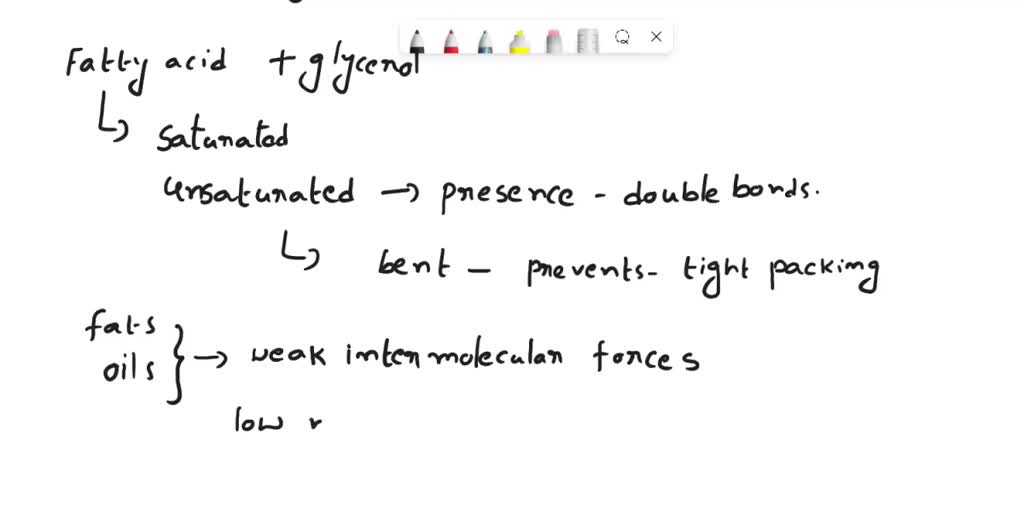 Fatty acid + glycerol
↳ saturated
unsaturated → presence - double bonds.
↳ bent - prevents - tight packing
fats
oils } → weak intermolecular forces
low r